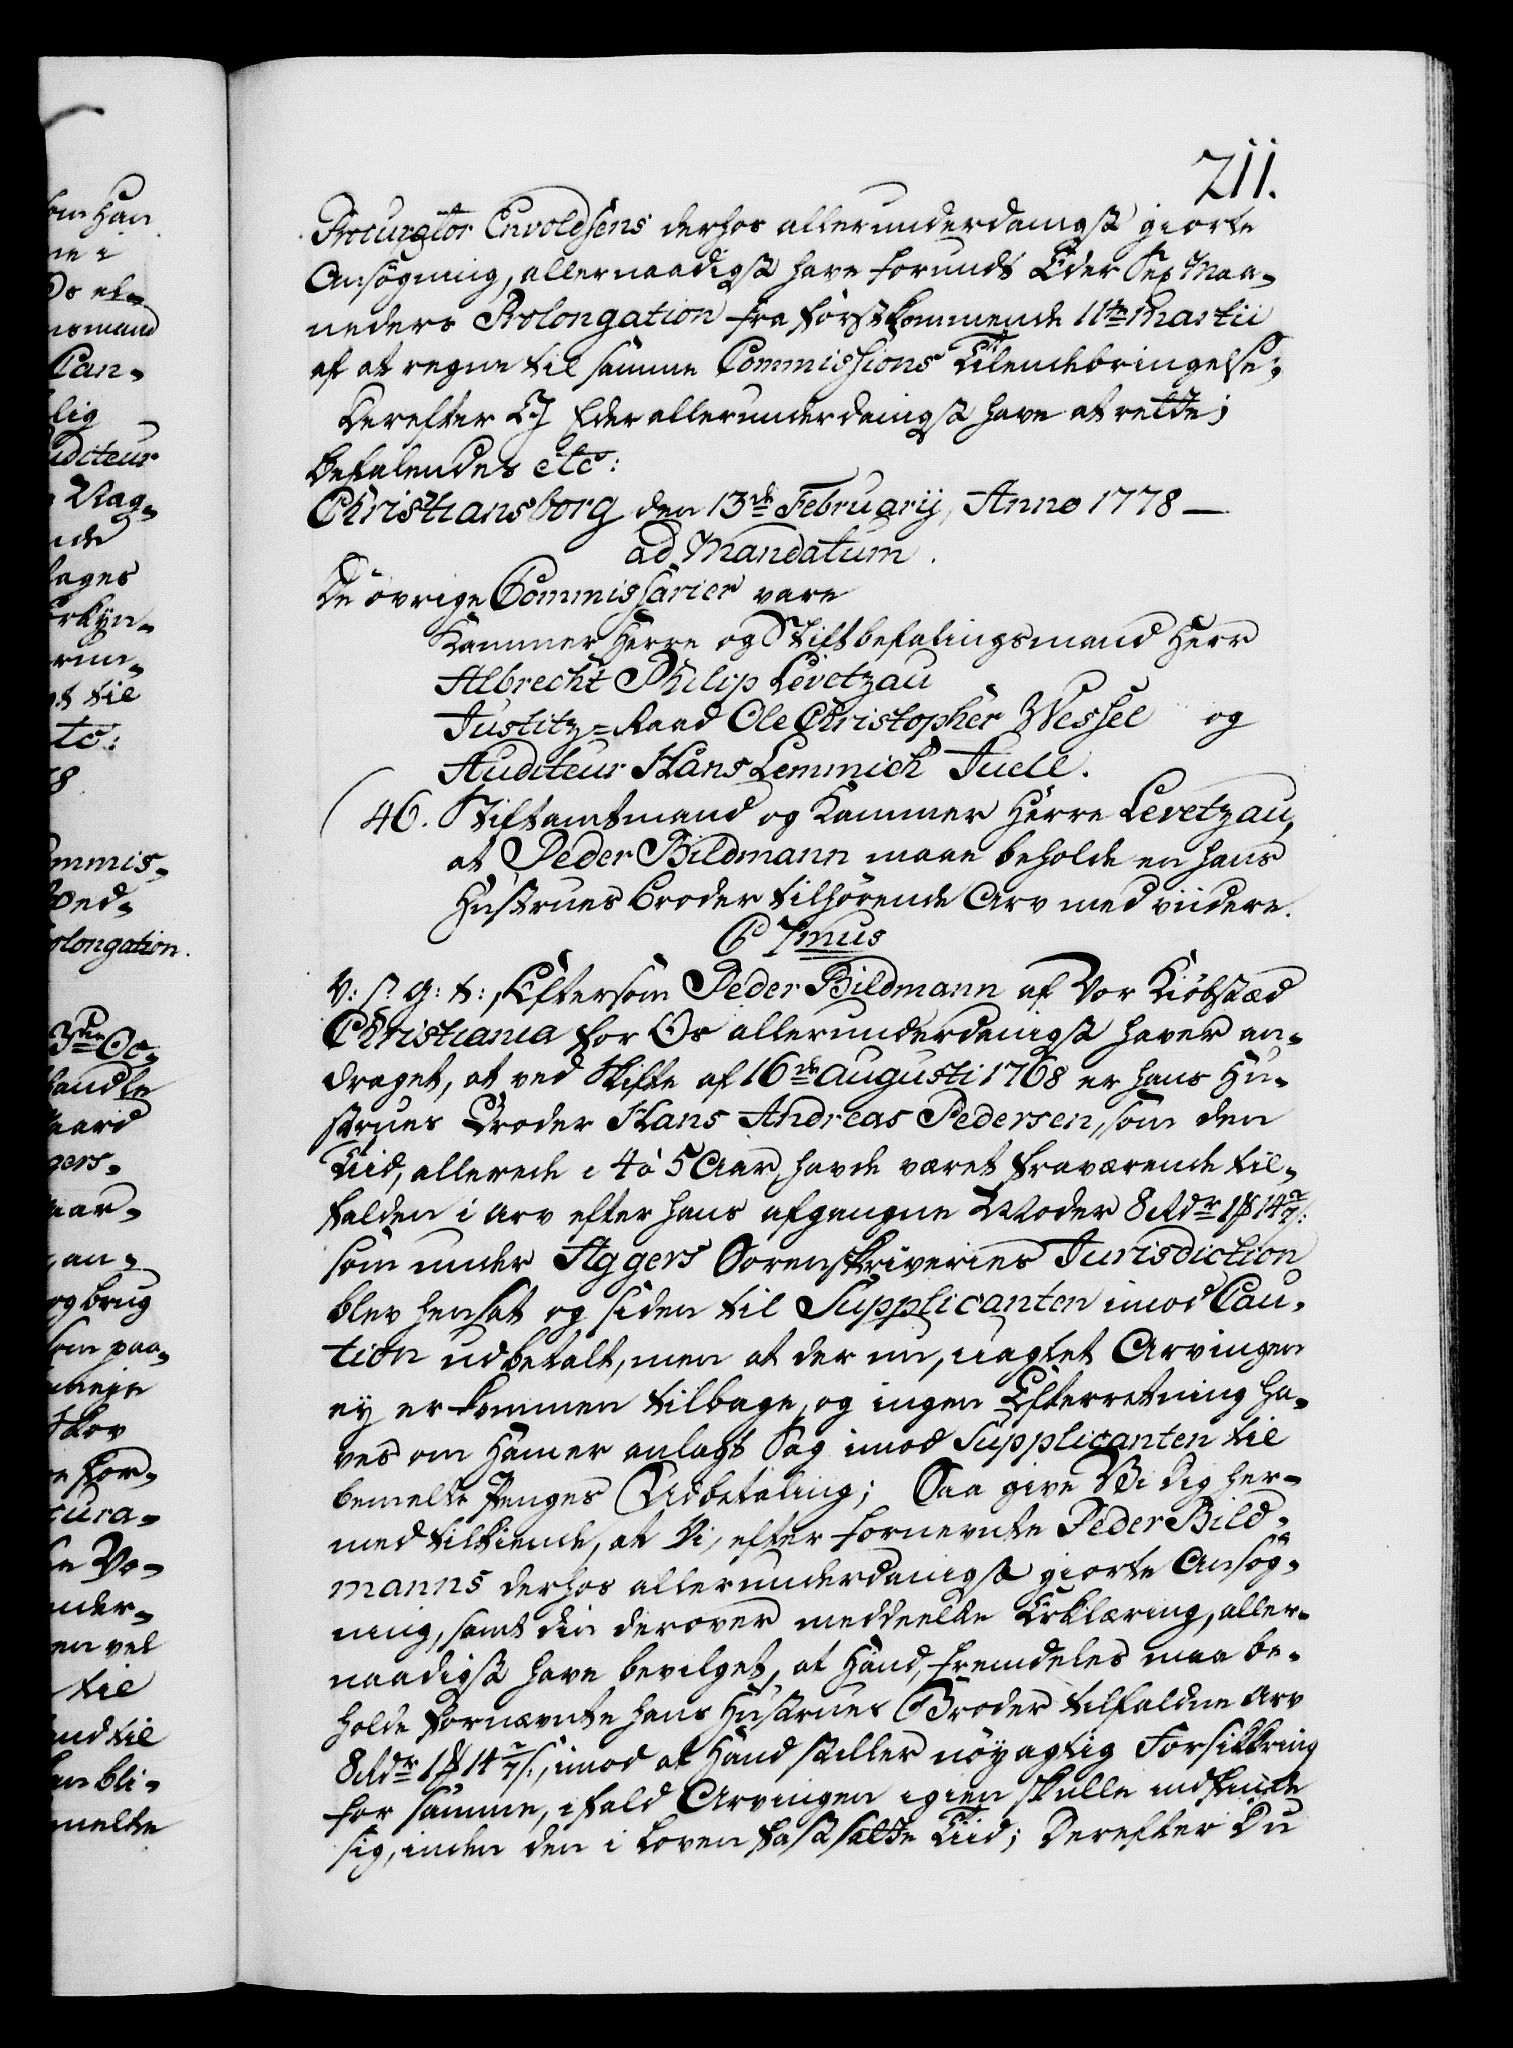 211.
Procurator Envoldsens derhos allerunderdanigst giorte
Ansøgning, allernaadigst have forundt Eder Sex Maa-
neders Prolongation fra førstkommende 11te Martii
af at regne til samme Commissions Tilendebringelse;
Derefter I Eder allerunderdanigst have at rette;
Befalendes etc:
Christiansborg den 13de Februarij, Anno 1778 —
ad Mandatum.
De øvrige Commissarier vare
Kammer Herre og Stiftbefalingsmand Herr
Albrecht Philip Levetzau
Justitz-Raad Ole Christopher Wessel og
Auditeur Hans Lemmich Juell.
46. Stiftamtmand og Kammer Herre Levetzau,
at Peder Bildmann maae beholde en hans
Hustrues Broder tilhørende Arv med viidere.
C 7mus
V: S: G: T:, Eftersom Peder Bildmann af Vor Kiøbstæd
Christiania for Os allerunderdanigst haver an-
draget, at ved Skifte af 16de Augusti 1768 er hans Hu-
strues Broder Hans Andreas Pedersen, som den
Tiid, allerede i 4 à 5 Aar, havde været fraværende til-
falden i Arv efter hans afgangne Moder 8 Rdr 1 ₰ 14 2/7 s:
som under Aggers Sorenskriveries Jurisdiction
blev hensat og siden til Supplicanten imod Cau-
tion udbetalt, men at der nu, uagtet Arvingen
ej er kommen tilbage, og ingen Efterretning ha-
ves om Ham er anlagt Sag imod Supplicanten til
bemelte Penges Udbetaling; Saa give Vi dig her-
med tilkiende, at Vi, efter fornevnte Peder Bild-
manns derhos allerunderdanigst giorte Ansøg-
ning, samt din derover meddeelte Erklæring, aller-
naadigst have bevilget, at Hand, fremdeles maa be-
holde fornævnte hans Hustrues Broder tilfaldne Arv
8 Rdr 1 ₰ 14 2/7 s:, imod at Hand stiller nøyagtig Forsikkring
for samme, ifald Arvingen igien skulle indfinde
sig, inden den i Loven fastsatte Tiid; Derefter Du